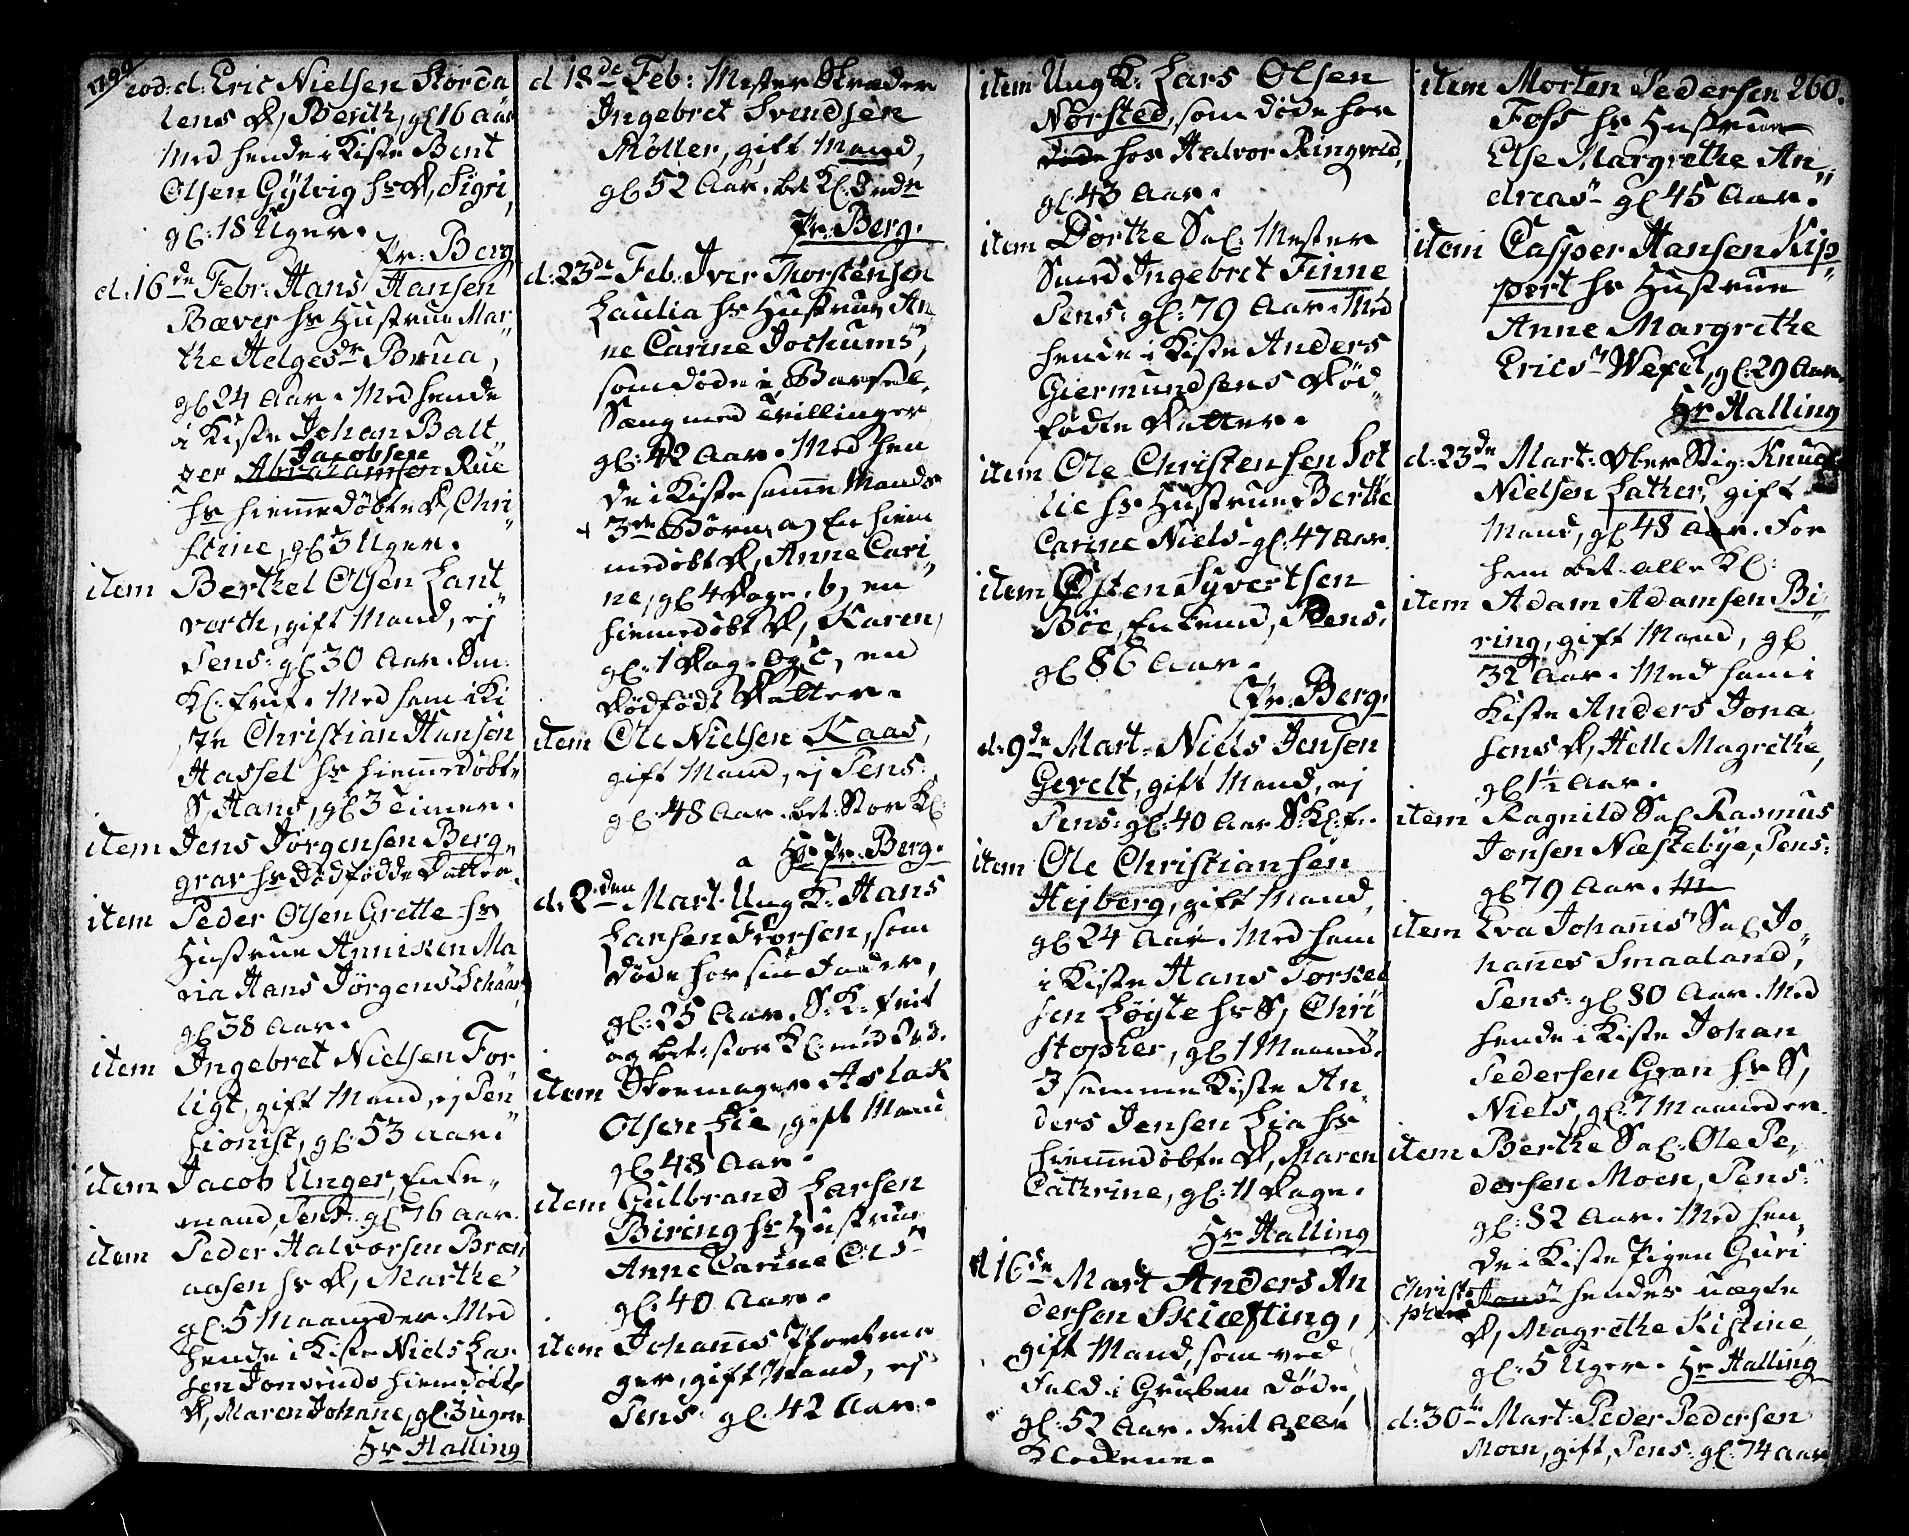 1799
eod: d: Eric Nielsen Storda
lens D, Berith, gl 16 aar
Med hende i Kiste Bent
Olsen Gÿlvig hs D, Sigri,
gl: 18 Uger.
Pr: Berg
d: 16de Febr: Hans Hansen
Bæver hs Hustrue Mar„
the Helgesdr Brua,
gl 24 Aar. Med hende
i Kiste Johan Balt„
Jacobsen
zer Abrahamsen Rue
hs hiemmedøbte D, Chri„
stine, gl 3 Uger.
item Berthel Olsen Lant„
verth, gift Mand, ej
Pens: gl 30 Aar. Sm:
Kl: frit. Med ham i Ki
ste Christian Hansen
Hassel hs hiemmedøbte
S, Hans, gl 3 Timer.
item Jens Jørgensen Berg„
grav hs Dødfødde Datter.
item Peder Olsen Grette hs
Hustrue Anniken Ma
ria Hans Jørgens Schaar,
gl 38 Aar.
item Ingebret Nielsen For„
ligt, gift Mand, ej Pen„
sionist, gl: 53 Aar.
item Jacob Unger, Enke„
mand, Pens: gl 76 aar.
item Peder Halvorsen Bran
aasen hs D, Marthe
gl: 5 Maaneder. Med
hende i Kiste Niels Lar
sen Jonsruds hiemdøbte
D, Maren Johanne, gl: 3 uger.
Hr Halling
d 18de Feb: Mester Skræder
Ingebret Svendsen
Møller, gift Mand,
gl 52 Aar. bet Kl: 3nde
Pr: Berg.
d: 23de Feb: Iver Thorstensen
Laulia hs Hustrue An„
ne Carine Jochums,
som døde i Barsel„
Sæng med Tvillinger
gl: 42 Aar. Med hen
de i Kiste samme Mands
3de Børn a, En hiem
medøbt D, Anne Cari„
ne, gl 4 Dage. b, en
hiemmedøbt D, Karen,
gl: 1 Dag. og c, en
Dødfødt Datter.
item Ole Nielsen Kaas,
gift Mand, ej Pens:
gl: 48 Aar. bet: Stor Kl:
Hr Pr: Berg.
d: 2den Mart. Ung K: Hans
Larsen Frorson, som
døde hos sin Fader,
gl: 25 Aar. S: K: frit
og bet: stor Kl: med
item Skomager Aslak
Olsen Lie, gift Mand
gl 48 Aar.
item Gulbrand Larsen
Biring hs Hustrue
Anne Carine Ols
gl: 40 Aar.
item Johannes Pfortma
ger, gift Mand, ej
Pens: gl: 42 Aar.
item Ung K: Lars Olsen
Nørsted, som døde hos
døde hos Halvor Ringveld,
gl 43 Aar.
item Dorthe Sal: Mester
Smed Ingebret Finne
Pens: gl: 79 Aar. Med
hende i Kiste Anders
Giermundsens Død„
fødte Datter.
item Ole Christensen Sot
lie hs Hustrue Berthe
Carine Niels gl: 47 Aar.
item Østen Syvertsen
Böe, Enkemd, Pens.
gl 86 Aar.
Pr: Berg.
d: 9de Mart. Niels Jensen
Gevelt, gift Mand, ej
Pens: gl: 40 Aar S: Kl: f.
item Ole Christiansen
Hejberg, gift Mand,
gl 24 Aar. Med ham
i Kiste Hans Torkel
sen Løgte hs S, Chri
stopher, gl 1 Maaned.
I samme Kiste An„
ders Jensen Lia hs
hiemmedøbte D, Maren
Cathrine, gl: 11 Dage.
Hr Halling
d 16de Mart Anders An
dersen Skiæfting,
gift Mand, som ved
Fald i Gruben døde,
gl: 52 Aar. Frit alle
Klokkerne.
item Morten Pedersen 260.
Foss hs Hustrue
Else Margrethe An„
dreas gl 45 Aar.
item Casper Hansen Kip„
pert hs Hustrue
Anne Margrethe
Erics Wefel, gl: 29 Aar.
Hr Halling
d: 23de Mart: Ober Stig: Knud
Nielsen Lather, gift
Mand, gl 48 Aar. For
ham bet: alle Kl:
item Adam Adamsen Bi„
ring, gift Mand, gl
32 Aar. Med ham i
Kiste Anders Jona
sens D, Helle Magrethe,
gl 1½ Aar.
item Ragnild Sal Rasmus
Jonsen Næstebÿe, Pens:
gl 79 Aar. M
item Eva Johannis Sal Jo„
hannes Smaaland,
Pens: gl: 80 Aar. Med
hende i Kiste Johan
Pedersen Gran hs S,
Niels, gl: 7 Maaneder.
item Berthe Sal: Ole Pe„
dersen Moen, Pens:
gl: 82 Aar. Med hen„
de i Kiste Pigen Guri
Christo
phers Jans hendes uægte
D, Magrethe Kistine,
gl: 5 Uger. Hr Halling
d: 30te Mart: Peder Pedersen
Moen, gift, Pens: gl: 74 Aar